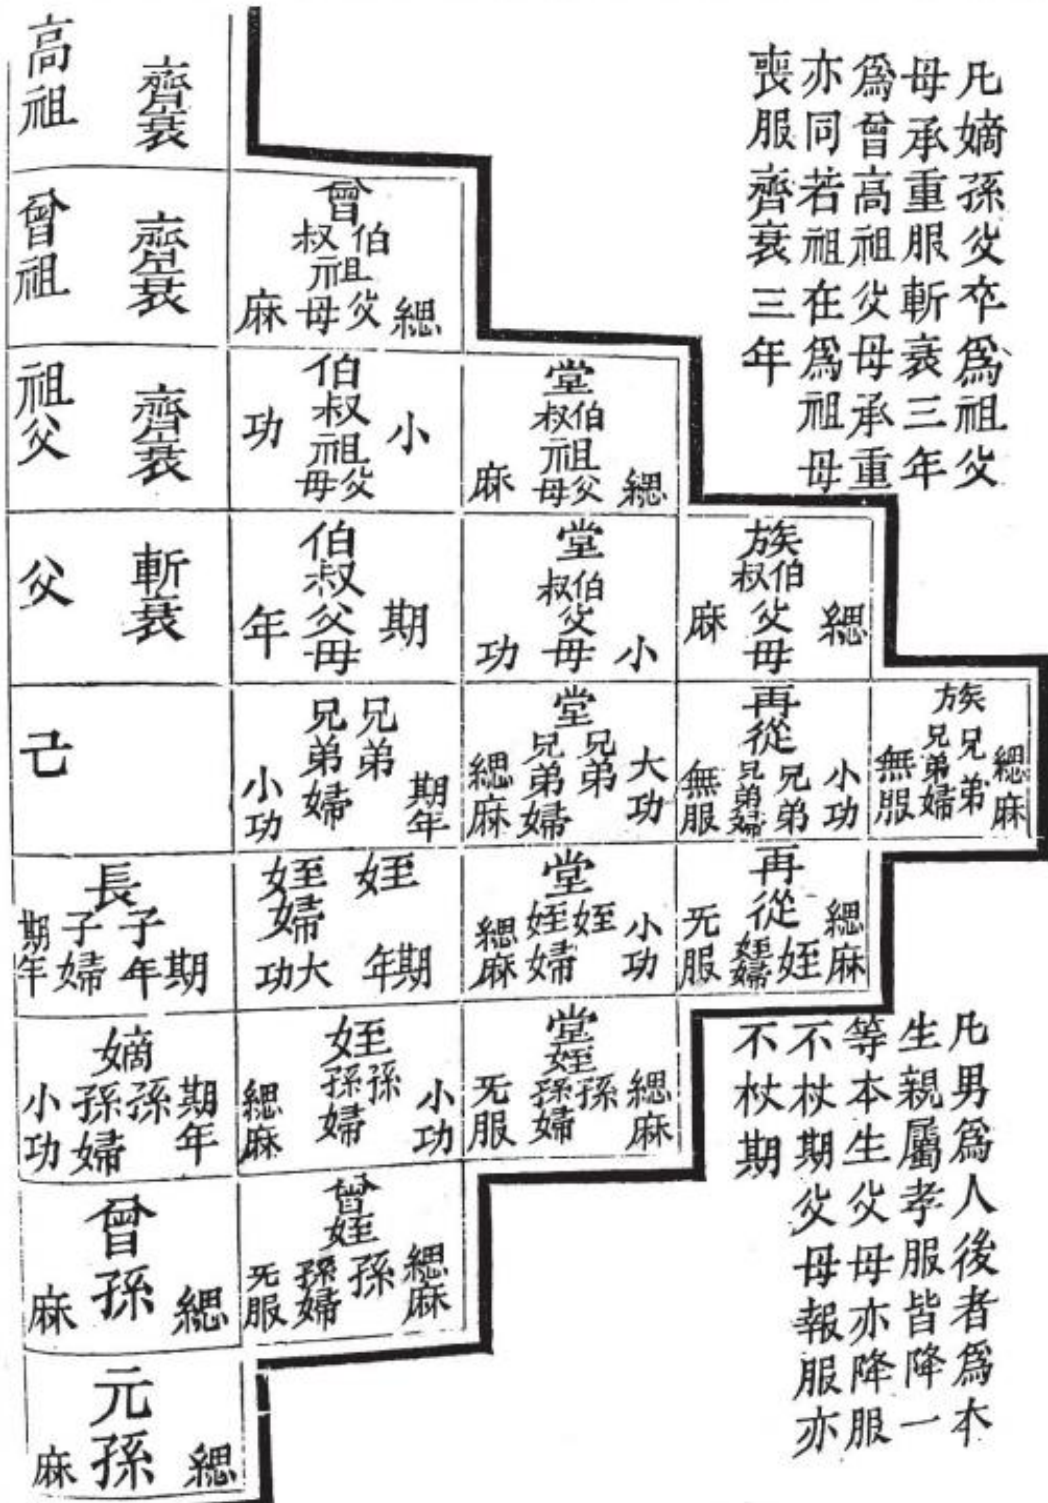 凡嫡孫父卒爲祖父
母承重服斬衰三年
爲曾高祖父母承重
亦同若祖在爲祖母
喪服齊衰三年
高祖 齊衰
曾祖 齊衰
曾伯叔祖父母 緦麻
祖父 齊衰
伯叔祖父母 小功
堂伯叔祖父母 緦麻
父 斬衰
伯叔父母 期年
堂伯叔父母 小功
族伯叔父母 緦麻
己
兄弟 期年 兄弟婦 小功
堂兄弟 大功 兄弟婦 緦麻
再從兄弟 小功 兄弟婦 無服
族兄弟 緦麻 兄弟婦 無服
長子 期年 子婦 期年
姪 期年 姪婦 大功
堂姪 小功 姪婦 緦麻
再從姪 緦麻 姪婦 无服
嫡孫 期年 孫婦 小功
姪孫 小功 孫婦 緦麻
堂姪孫 緦麻 孫婦 无服
曾孫 緦麻
曾姪孫 緦麻 孫婦 无服
元孫 緦麻
凡男爲人後者爲本
生親屬孝服皆降一
等本生父母亦降服
不杖期父母報服亦
不杖期